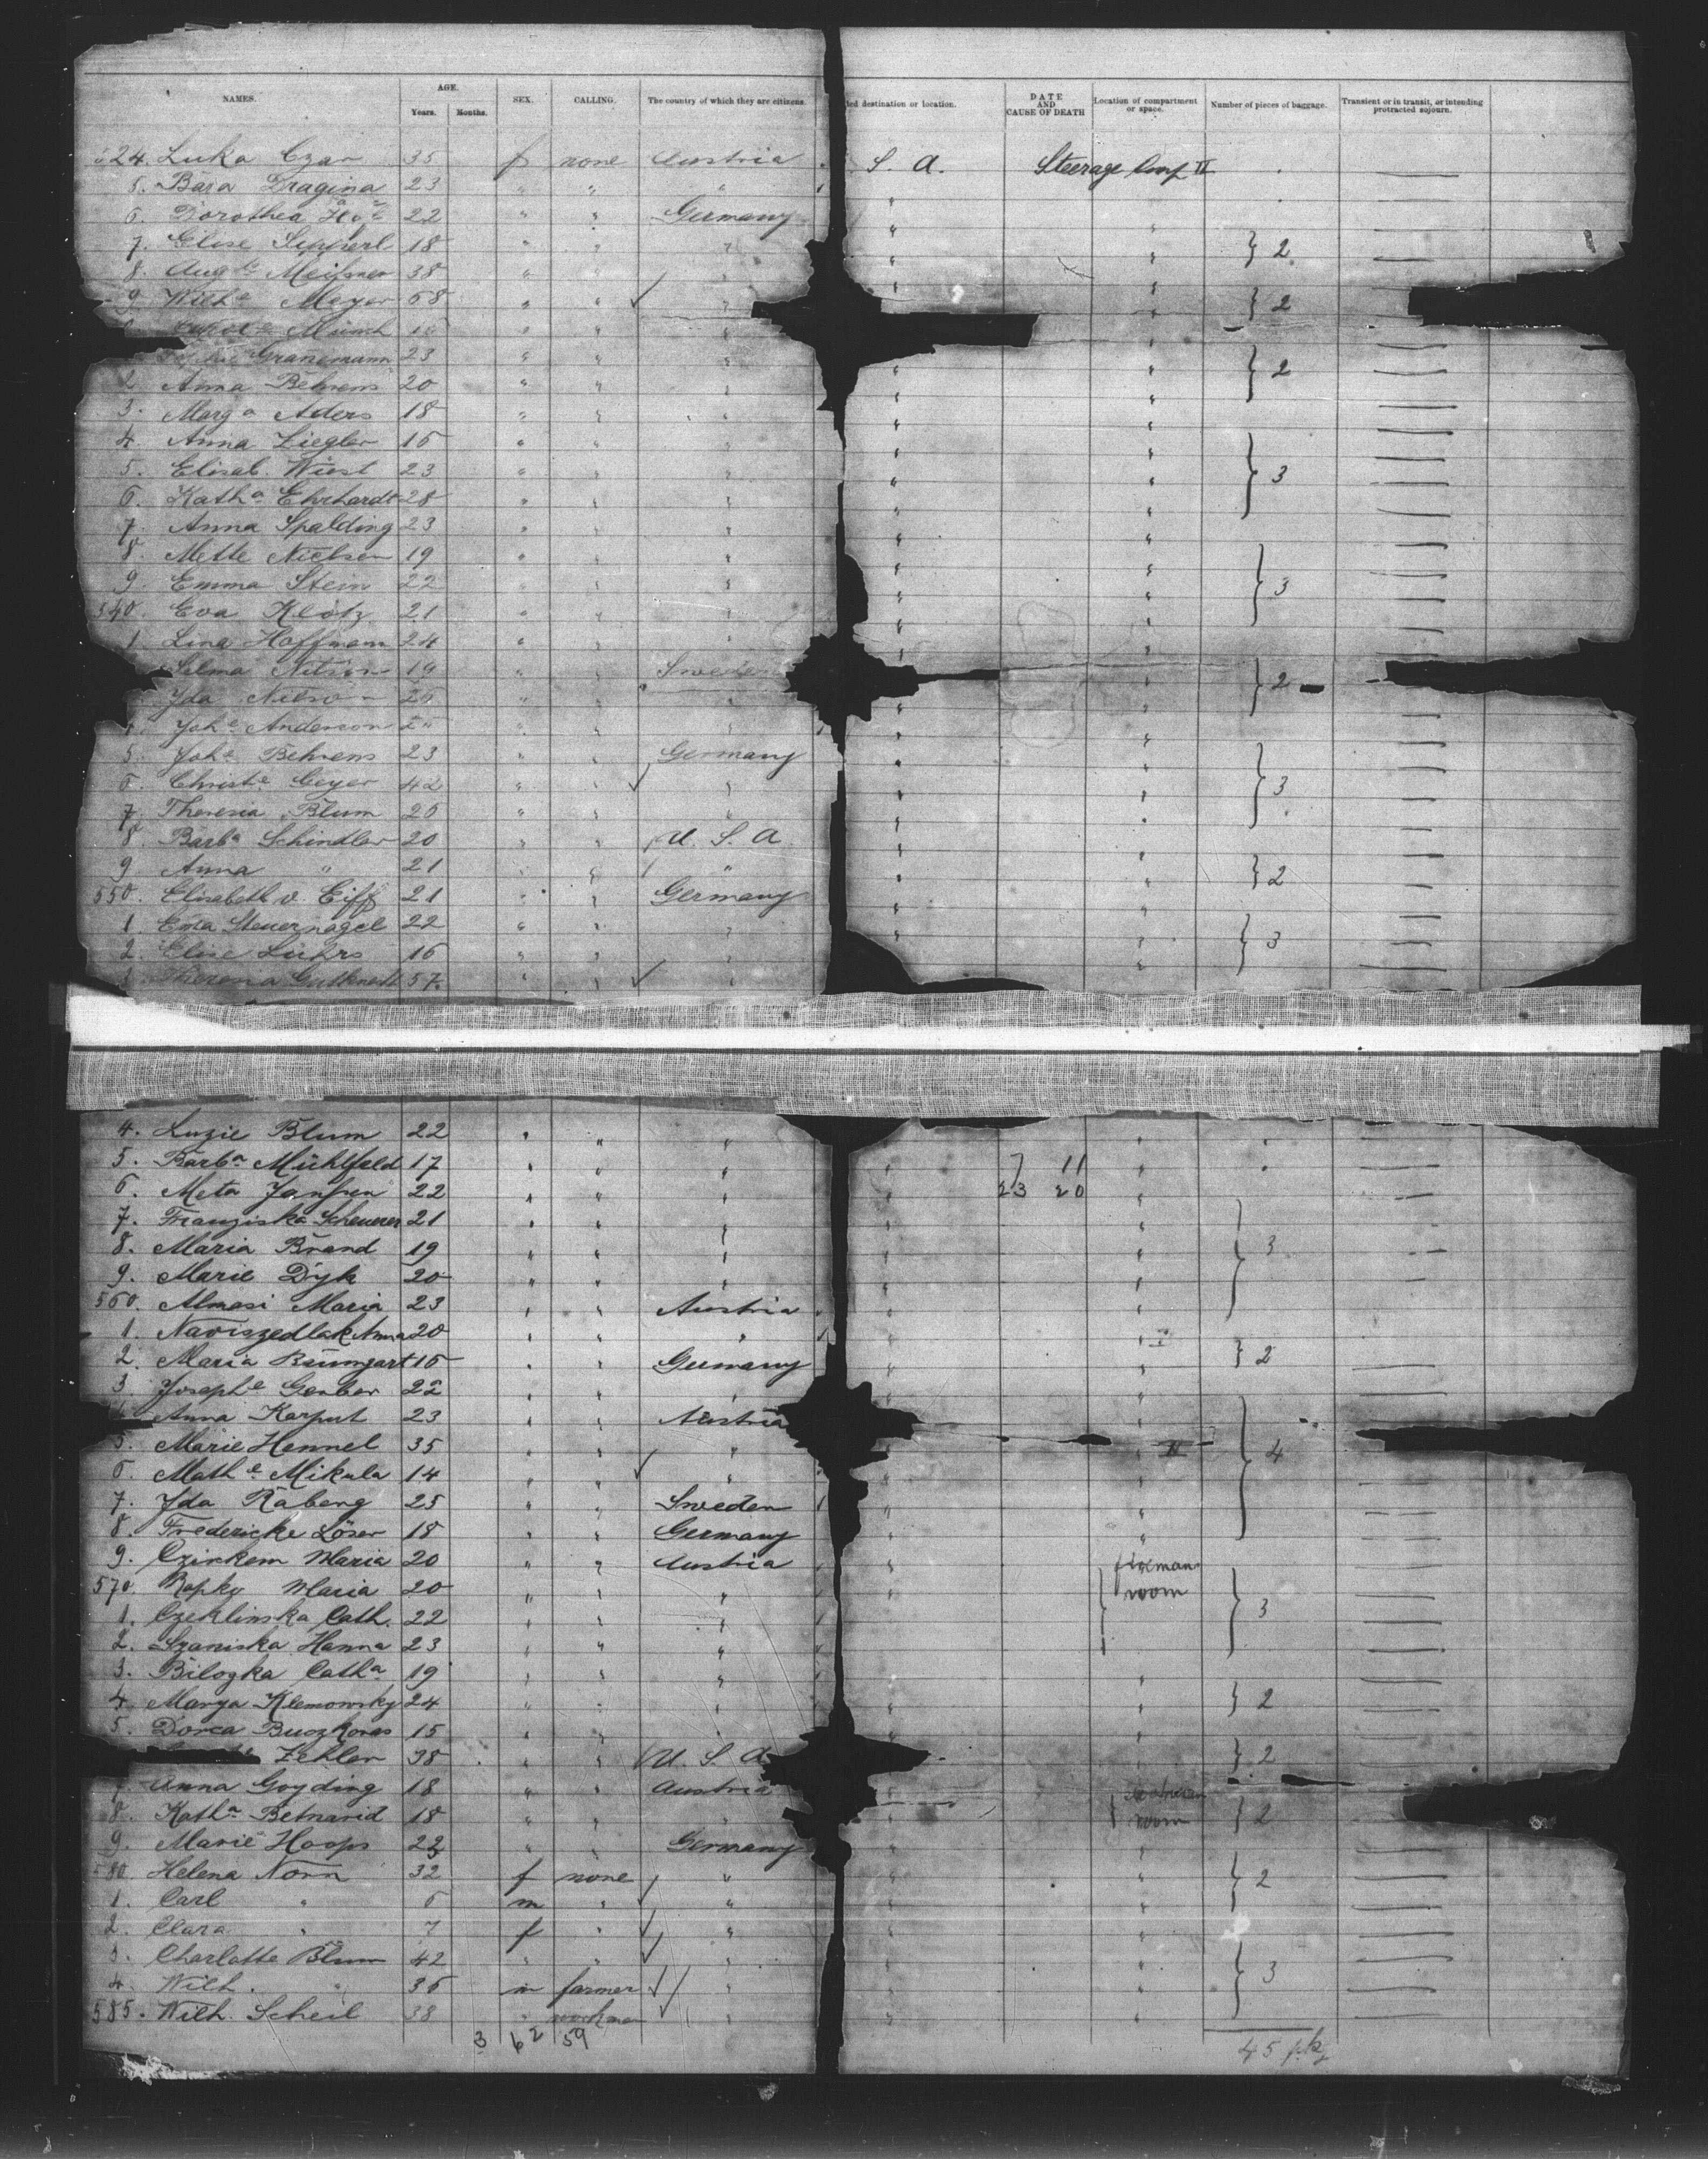 NAMES. AGE. SEX. CALLING. The country of which they are citizens. ed destination or location. DATE AND CAUSE OF DEATH Location of compartment or space. Number of pieces of baggage. Transient or in transit, or intending protracted sojourn.
Years. Months.
524. Luka Czar 35 f none Austria S. A. Steerage Comp II —
5. Bara Dragina 23 " " " " —
6. Dorothea 22 " " Germany " " —
7. Elise 18 " " " " " } 2 —
8. Aug te Meißner 38 " " " " " —
9. Wilh e Meyer 68 " " ✓ " " } 2
Münch " " "
Granemann 23 " " " " —
2. Anna Behrens 20 " " " " " } 2 —
3. Marg a Aders 18 " " " " " —
4. Anna Ziegler 16 " " " " " —
5. Elisab. Wiest 23 " " " " " } 3 —
6. Kath a Ehrhardt 28 " " " " " —
7. Anna Spalding 23 " " " " " —
8. Mette Nielsen 19 " " " " " —
9. Emma Stein 22 " " " " " } 3 —
540. Eva Klotz 21 " " " " " —
1. Lina Hoffmann 24 " " " " " —
Selma Nilson 19 " " Sweden " } 2
Ida Nilson 26 " " " " " —
4. Joh e Anderson " " " " " —
5. Joh e Behrens 23 " " Germany " " —
6. Christ e Geyer 42 " " ✓ " " " } 3 —
7. Theresia Blum 26 " " " " " —
8. Barb a Schindler 20 " " U. S. A. " " —
9. Anna " 21 " " " " " } 2 —
550. Elisabeth v. Eiff 21 " " Germany " " —
1. Erna Steuernagel 22 " " " " " } 3 —
2. Elise Lührs 16 " " " " —
3. Theresia Gutknecht 57 " " ✓ "
4. Luzie Blum 22 " " " " "
5. Barb a Mühlfeld 17 " " " " 7 11 " —
6. Meta Janßen 22 " " " " 23 20 " —
7. Franziska Scheuerer 21 " " " " " —
8. Maria Brand 19 " " " " " } 3 —
9. Marie Dyk 20 " " " " " —
560. Almasi Maria 23 " " Austria " " —
1. Naviszedlak Anna 20 " " " " I —
2. Maria Baumgart 16 " " Germany " " } 2 —
3. Joseph e Gerber 22 " " " " " —
4. Anna Karput 23 " " Austria "
5. Marie Hennel 35 " " " " II } 4
6. Math e Mikula 14 " " ✓ " " " —
7. Ida Raberg 25 " " Sweden " " —
8. Fredericke Löser 18 " " Germany " " —
9. Czirkem Maria 20 " " Austria " fireman —
570. Rapky Maria 20 " " " " room —
1. Czeklinska Cath. 22 " " " " } 3 —
2. Szaniska Hanna 23 " " " " —
3. Bilozka Cath a 19 " " " " " —
4. Marya Klemowsky 24 " " " " " } 2 —
5. Dorca 15 " " " " —
Zehler 38 " " U. S. A. " } 2
7. Anna Goyding 18 " " Austria "
8. Kath a Betnarid 18 " " " " room } 2
9. Marie Hoops 22 " " Germany " " —
580. Helena Norn 32 f none " " " } 2 —
1. Carl " 6 m " ✓ " " " —
2. Clara " 7 f " ✓ " " " —
3. Charlotte Blum 42 " " ✓ " " " —
4. Wilh. " 36 m farmer ✓ " " " } 3 —
585. Wilh. Scheil 38 " workman " " " —
3 62 59 45 pk